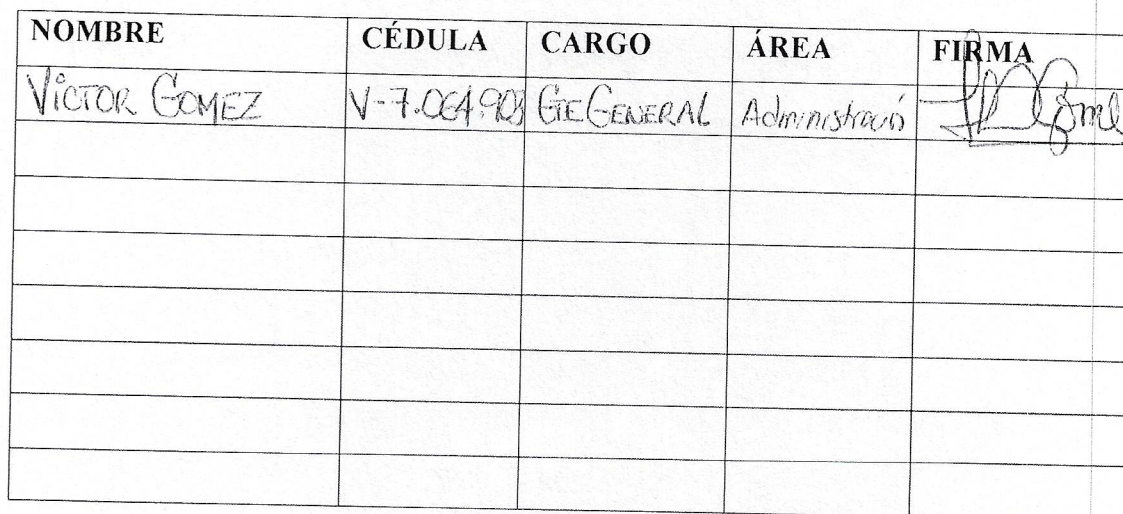 NOMBRE CÉDULA CARGO ÁREA FIRMA
VICTOR GOMEZ V-7.064.903 GTE GENERAL Administració